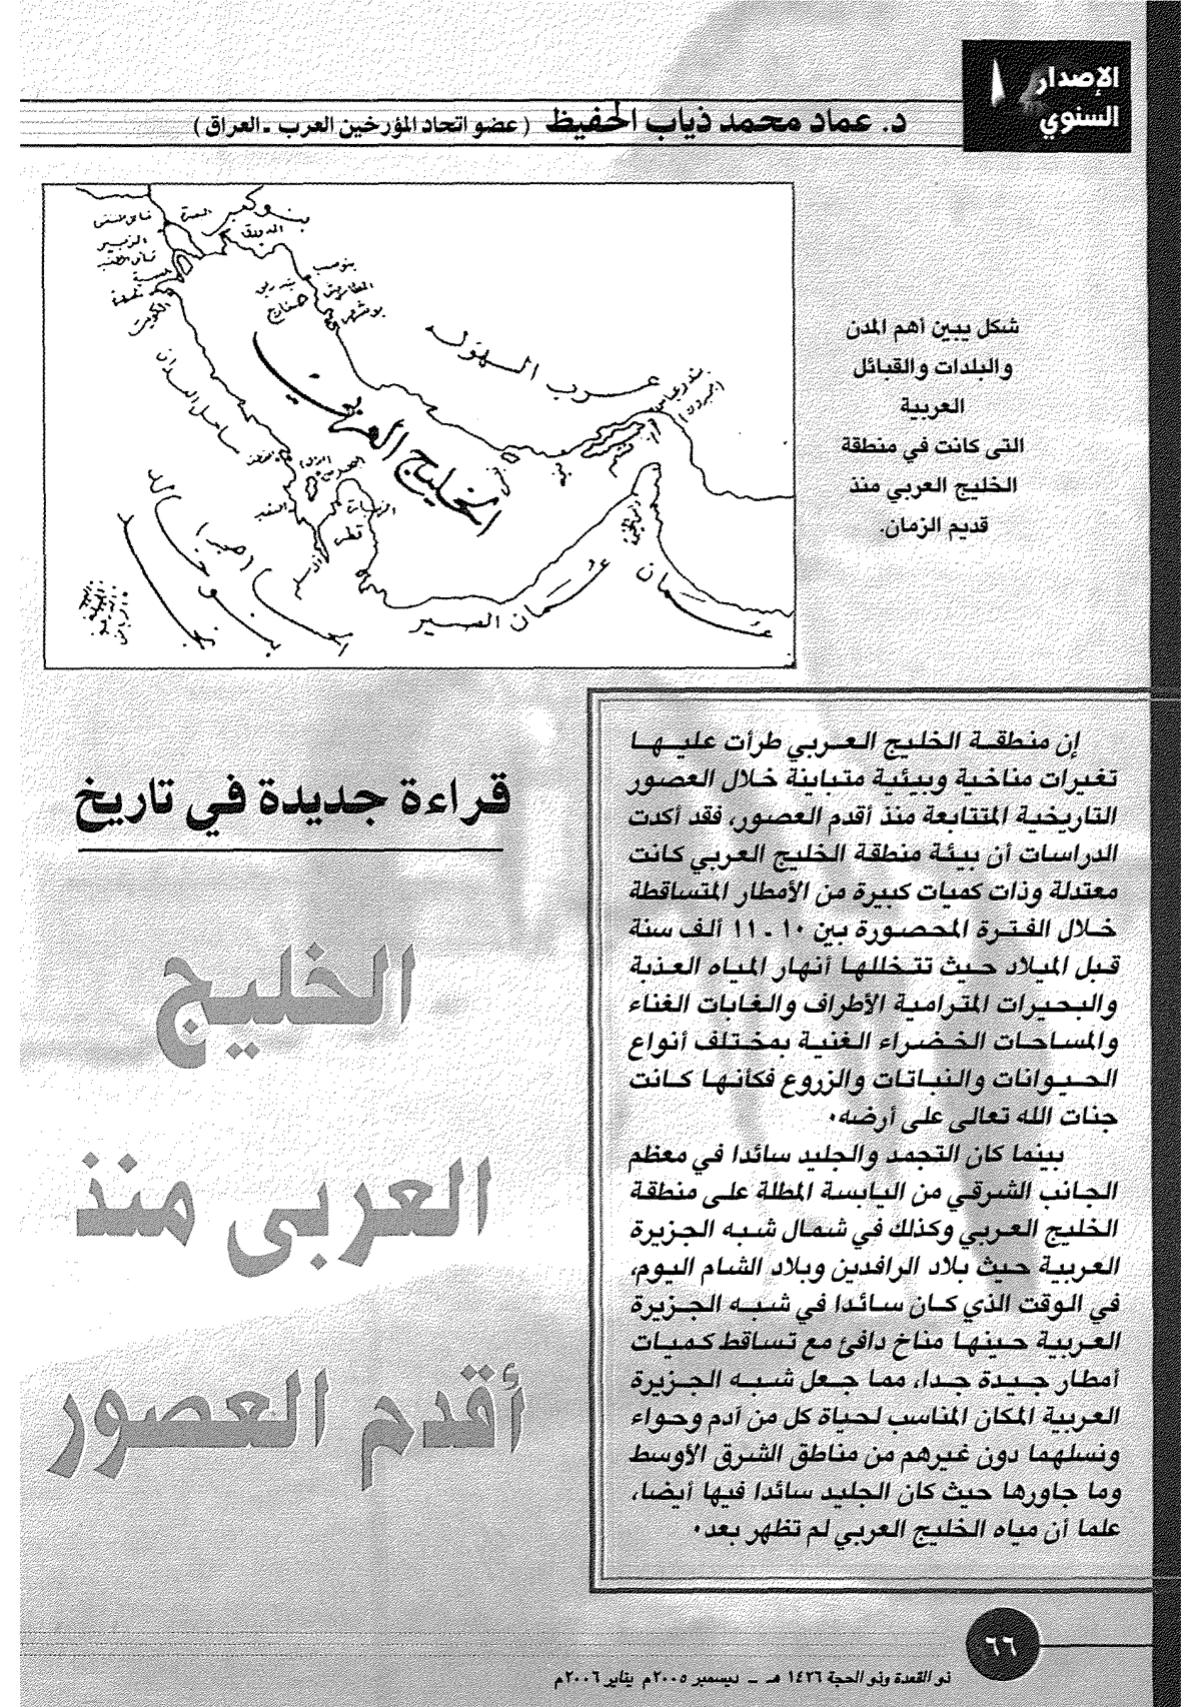 الإصدار
السنوي
د. عماد محمد ذياب الحفيظ (عضو اتحاد المؤرخين العرب ـ العراق)
بنو كعب
البصرة
الدورق
الزبير
الكويت
بوشهر
عرب الهولة
بندر عباس
الخليج العربي
ساحل العدان
قطر
بنو خالد
نجد
عُمان الصير
عُمان
شكل يبين أهم المدن
والبلدات والقبائل
العربية
التى كانت في منطقة
الخليج العربي منذ
قديم الزمان.
قراءة جديدة في تاريخ
الخليج
العربى منذ
أقدم العصور
إن منطقة الخليج العربي طرأت عليها
تغيرات مناخية وبيئية متباينة خلال العصور
التاريخية المتتابعة منذ أقدم العصور، فقد أكدت
الدراسات أن بيئة منطقة الخليج العربي كانت
معتدلة وذات كميات كبيرة من الأمطار المتساقطة
خلال الفترة المحصورة بين ١٠ ـ ١١ ألف سنة
قبل الميلاد حيث تتخللها أنهار المياه العذبة
والبحيرات المترامية الأطراف والغابات الغناء
والمساحات الخضراء الغنية بمختلف أنواع
الحيوانات والنباتات والزروع فكأنها كانت
جنات الله تعالى على أرضه.
بينما كان التجمد والجليد سائدا في معظم
الجانب الشرقي من اليابسة المطلة على منطقة
الخليج العربي وكذلك في شمال شبه الجزيرة
العربية حيث بلاد الرافدين وبلاد الشام اليوم،
في الوقت الذي كان سائدا في شبه الجزيرة
العربية حينها مناخ دافئ مع تساقط كميات
أمطار جيدة جدا، مما جعل شبه الجزيرة
العربية المكان المناسب لحياة كل من أدم وحواء
ونسلهما دون غيرهم من مناطق الشرق الأوسط
وما جاورها حيث كان الجليد سائدا فيها أيضا،
علما أن مياه الخليج العربي لم تظهر بعد.
٦٦
ذو القعدة وذو الحجة ١٤٢٦ هـ ــ ديسمبر ٢٠٠٥م يناير ٢٠٠٦م